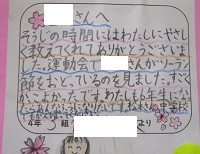 さんへ
そうじの時間にはわたしにやさし
く教えてくれてありがとうございまし
た。運動会で さんがソーラン
節をおどっているのを見ました。すごく
かっこよかったです。わたしも6年生に
4年3組 より